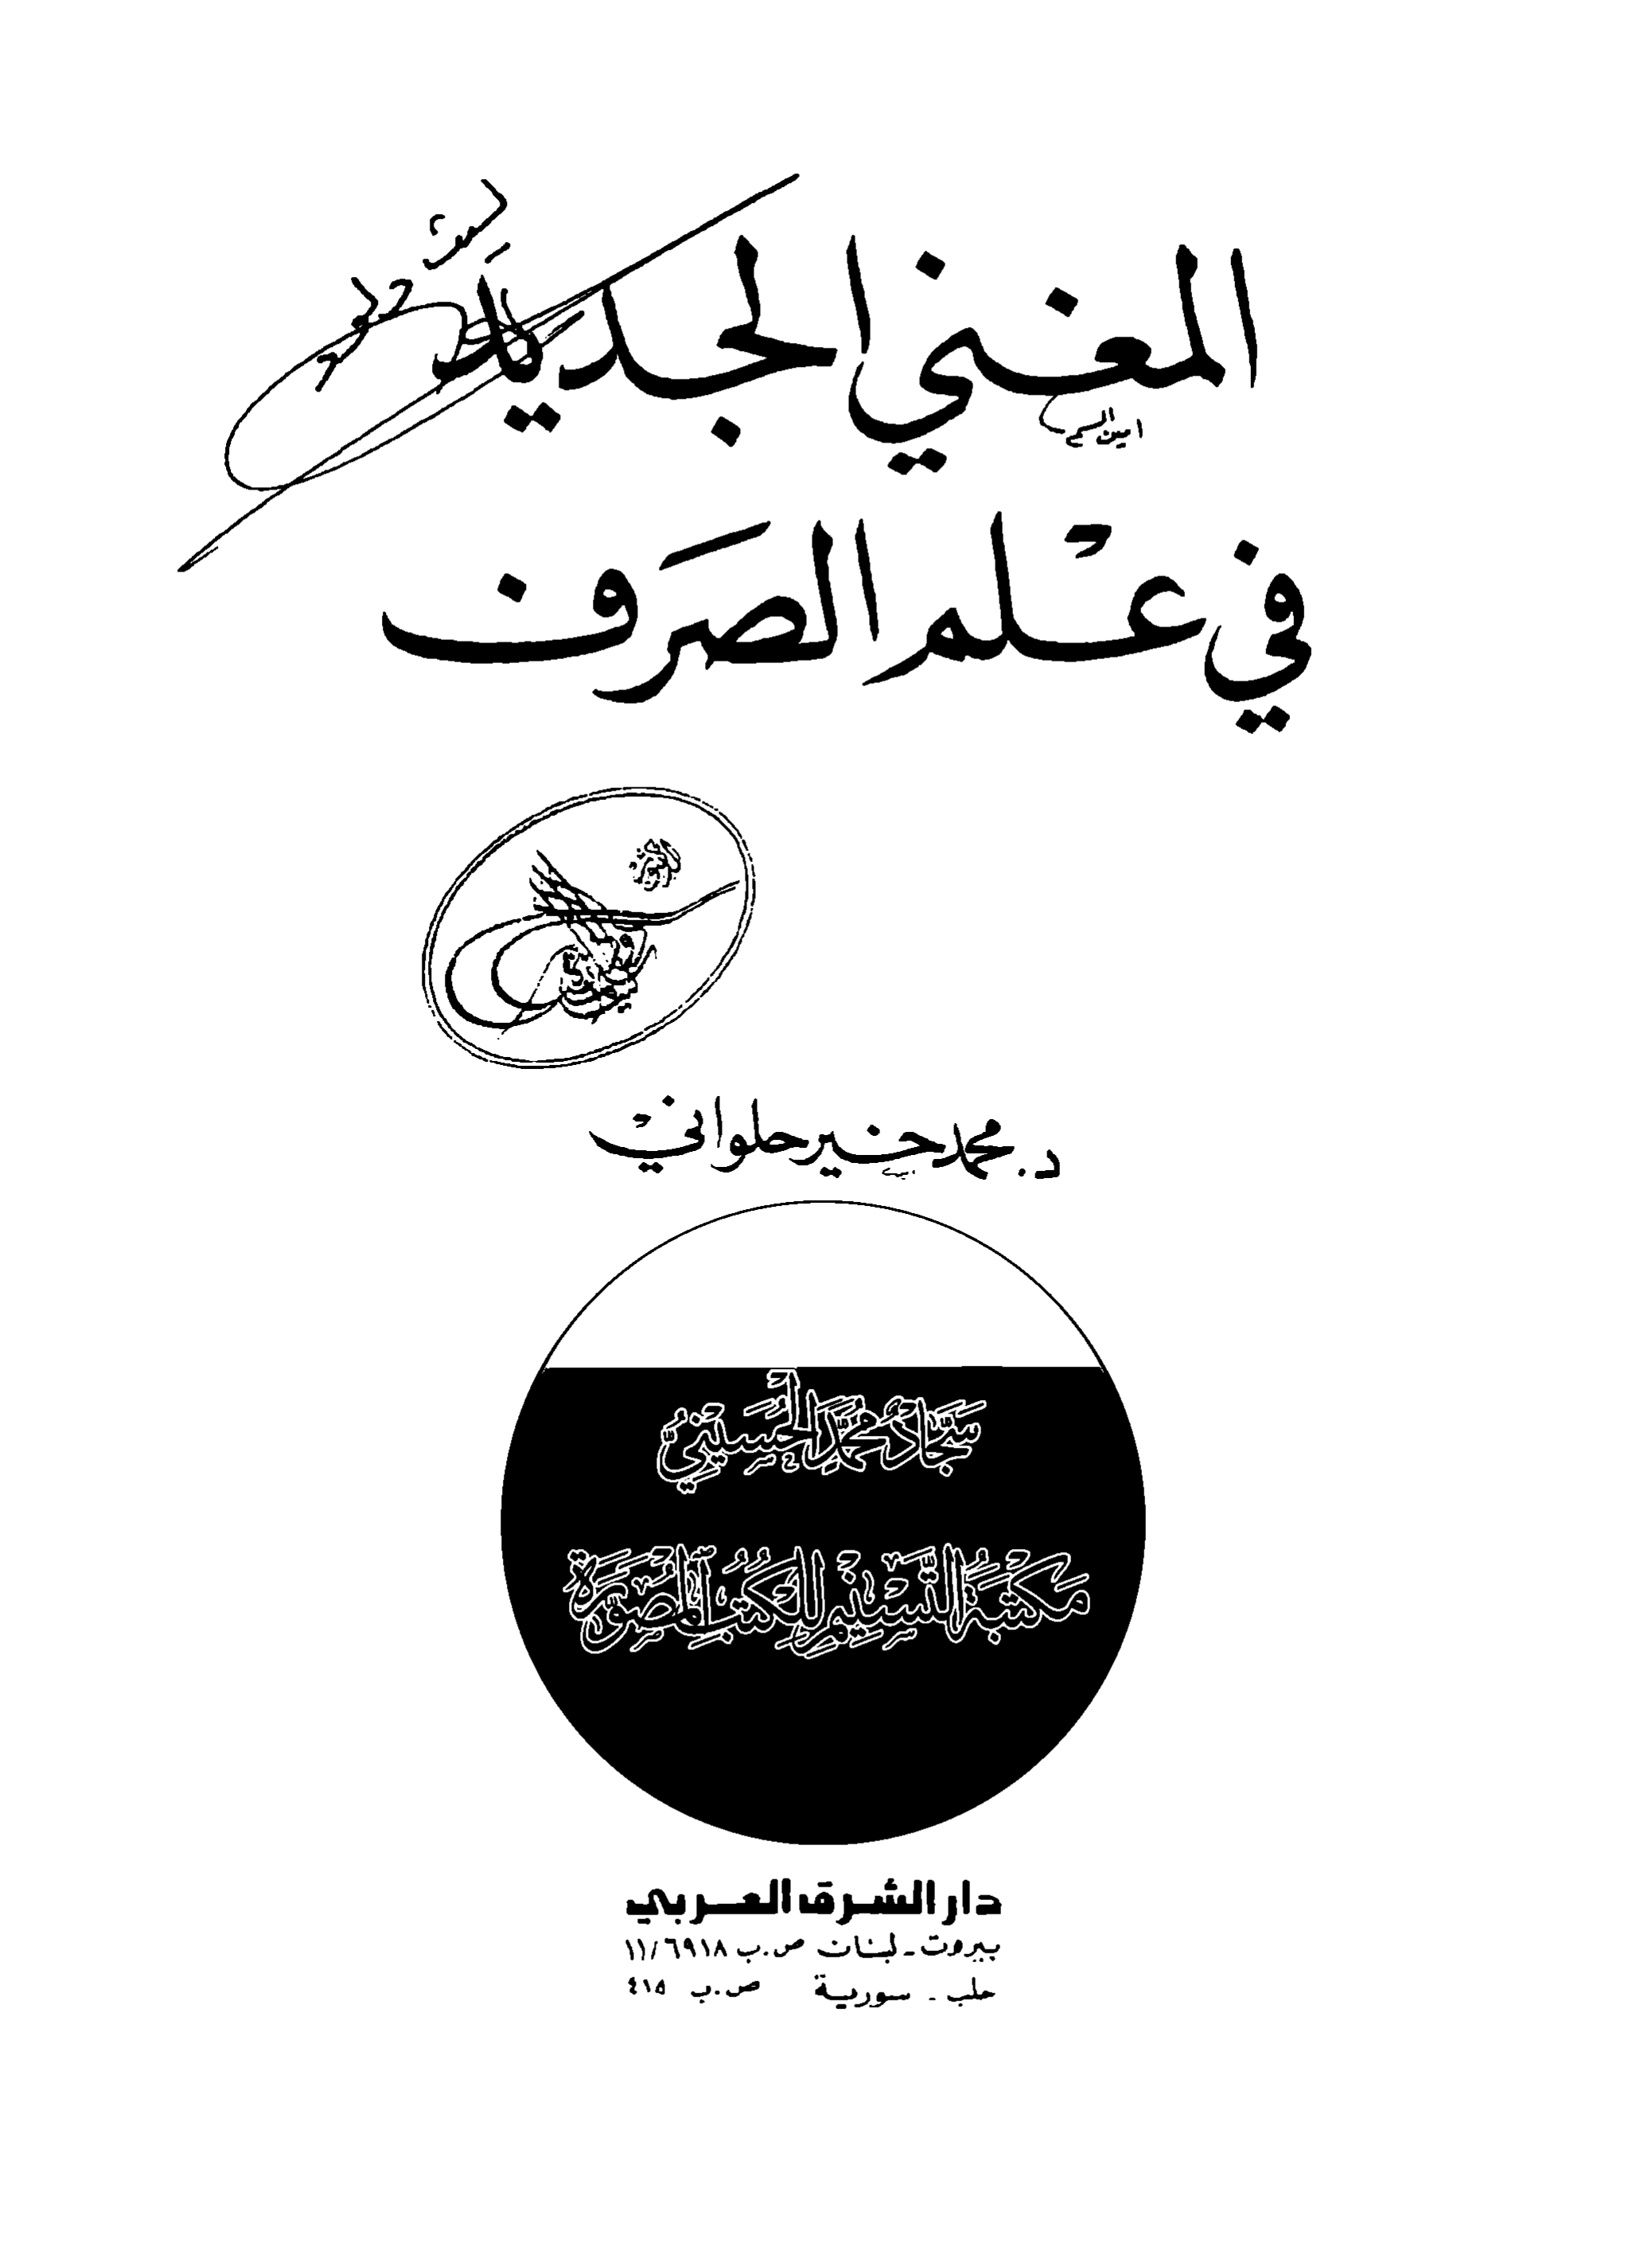 المغني الجديد
في عْلم الصَرف
د. محمد خير حلواني
سَجَّادُ مُحَمَّد الحُسَينيّ
مَكتَبَةُ التَّسنيم للكُتُب المُصَوَّرَة
دار الشرق العربي
بيروت - لبنان ص.ب ١١/٦٩١٨
حلب - سورية ص.ب ٤١٥